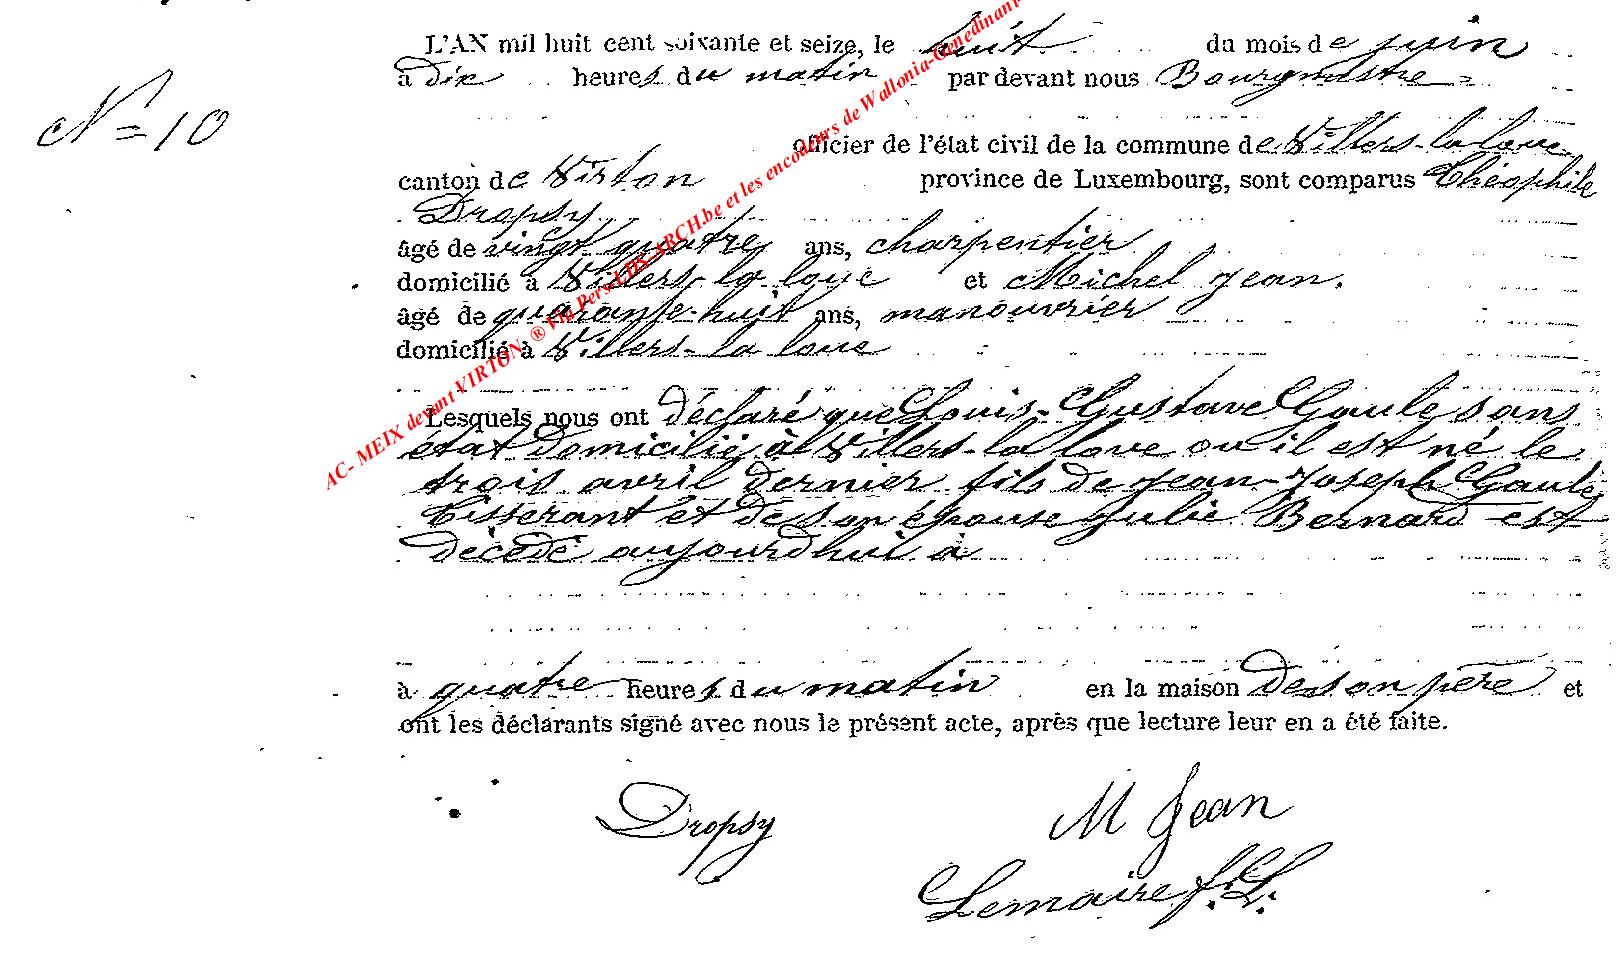 L'AN mil huit cent soixante et seize, le huit du mois de juin
à dix heures du matin par devant nous Bourgmestre
N= 10
Officier de l'état civil de la commune de Villers-la-loue
canton de Virton province de Luxembourg, sont comparus Théophile
Dropsy
âgé de vingt quatre ans, charpentier
domicilié à Villers-la-loue et Michel Jean.
âgé de quarante-huit ans, manouvrier
domicilié à Villers-la loue
Lesquels nous ont déclaré que Louis-Gustave Gaule sans
état domicilié à Villers-la loue ou il est né le
trois avril dernier fils de Jean-Joseph Gaule
tisserant et de son épouse Julie Bernard est
décédé aujourdhui à
à quatre heures du matin en la maison de son père et
ont les déclarants signé avec nous le présent acte, après que lecture leur en a été faite.
Dropsy
M Jean
Lemaire f.L.
AC- MEIX devant VIRTON ® Via Pers-LDS-ARCH.be et les encodeurs de Wallonia-Genedinant